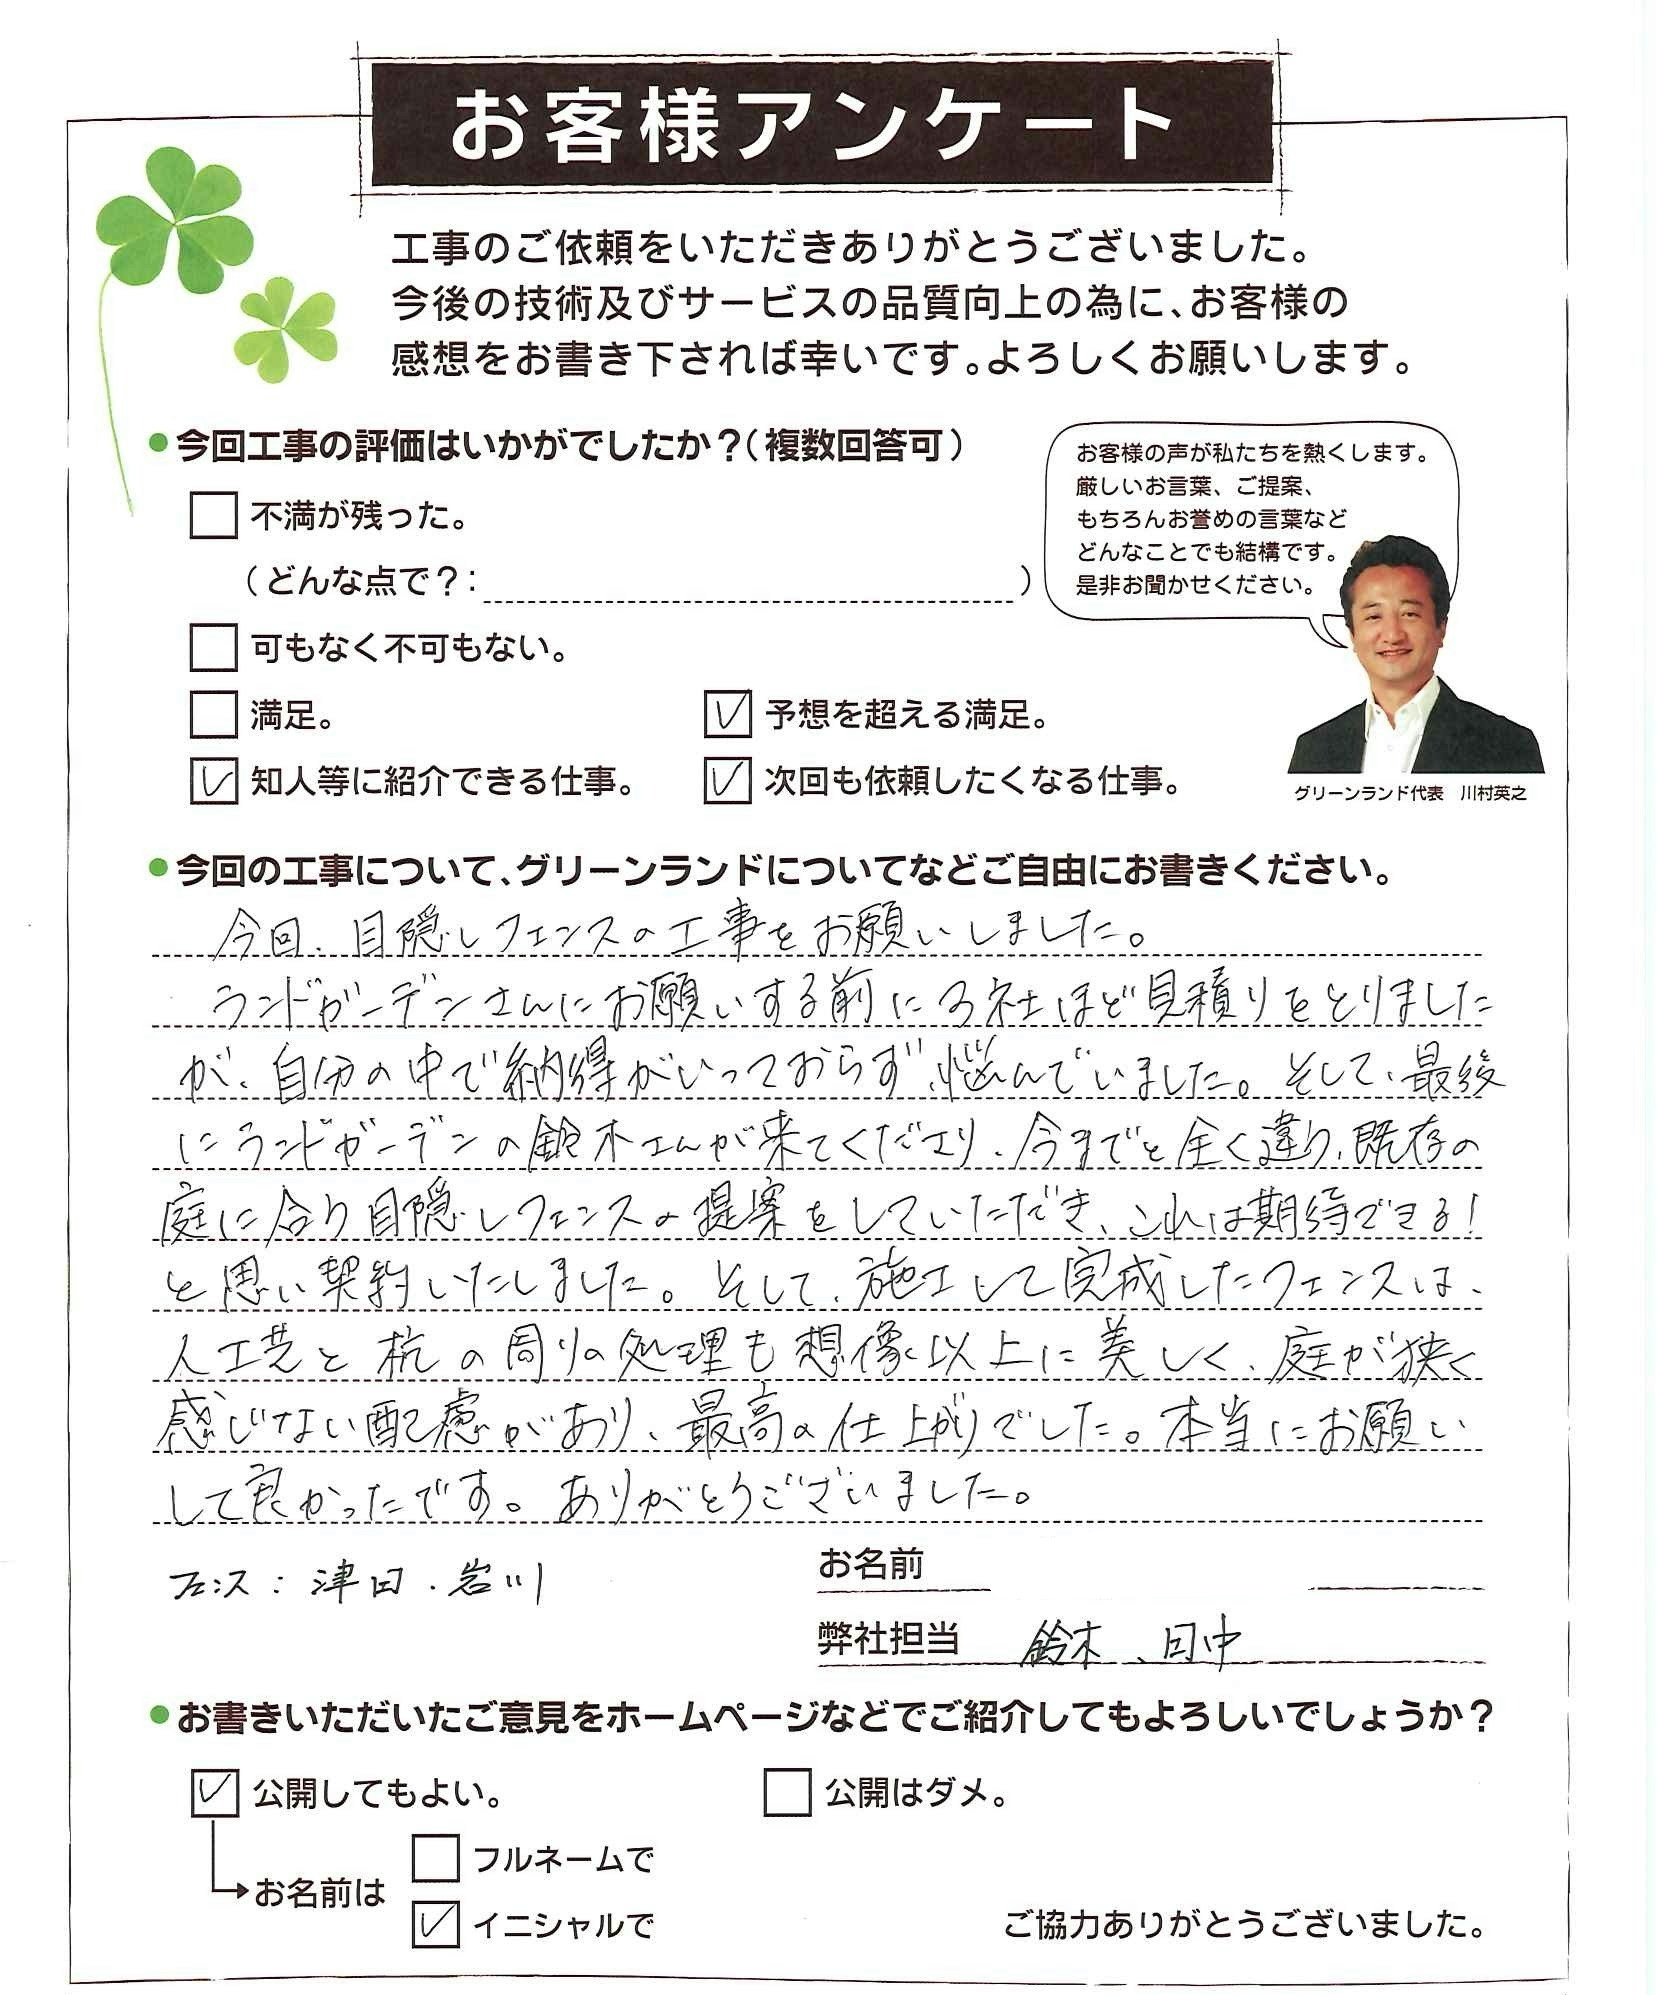 お客様アンケート
工事のご依頼をいただきありがとうございました。
今後の技術及びサービスの品質向上の為に、お客様の
感想をお書き下されば幸いです。よろしくお願いします。
●今回工事の評価はいかがでしたか？（複数回答可）
不満が残った。
（どんな点で？：　）
可もなく不可もない。
満足。
予想を超える満足。
知人等に紹介できる仕事。
次回も依頼したくなる仕事。
お客様の声が私たちを熱くします。
厳しいお言葉、ご提案、
もちろんお誉めの言葉など
どんなことでも結構です。
是非お聞かせください。
グリーンランド代表　川村英之
●今回の工事について、グリーンランドについてなどご自由にお書きください。
今回、目隠しフェンスの工事をお願いしました。
ランドガーデンさんにお願いする前に3社ほど見積りをとりました
が、自分の中で納得がいっておらず、悩んでいました。そして、最後
にランドガーデンの鈴木さんが来てくださり、今までと全く違り、既存の
庭に合り目隠しフェンスの提案をしていただき、これは期待できる！
と思い契約いたしました。そして、施工して完成したフェンスは、
人工芝と杭の周りの処理も想像以上に美しく、庭が狭く
感じない配慮があり、最高の仕上がりでした。本当にお願い
して良かったです。ありがとうございました。
フェンス：津田・岩川
お名前
弊社担当　鈴木、田中
●お書きいただいたご意見をホームページなどでご紹介してもよろしいでしょうか？
公開してもよい。
公開はダメ。
お名前は
フルネームで
イニシャルで
ご協力ありがとうございました。